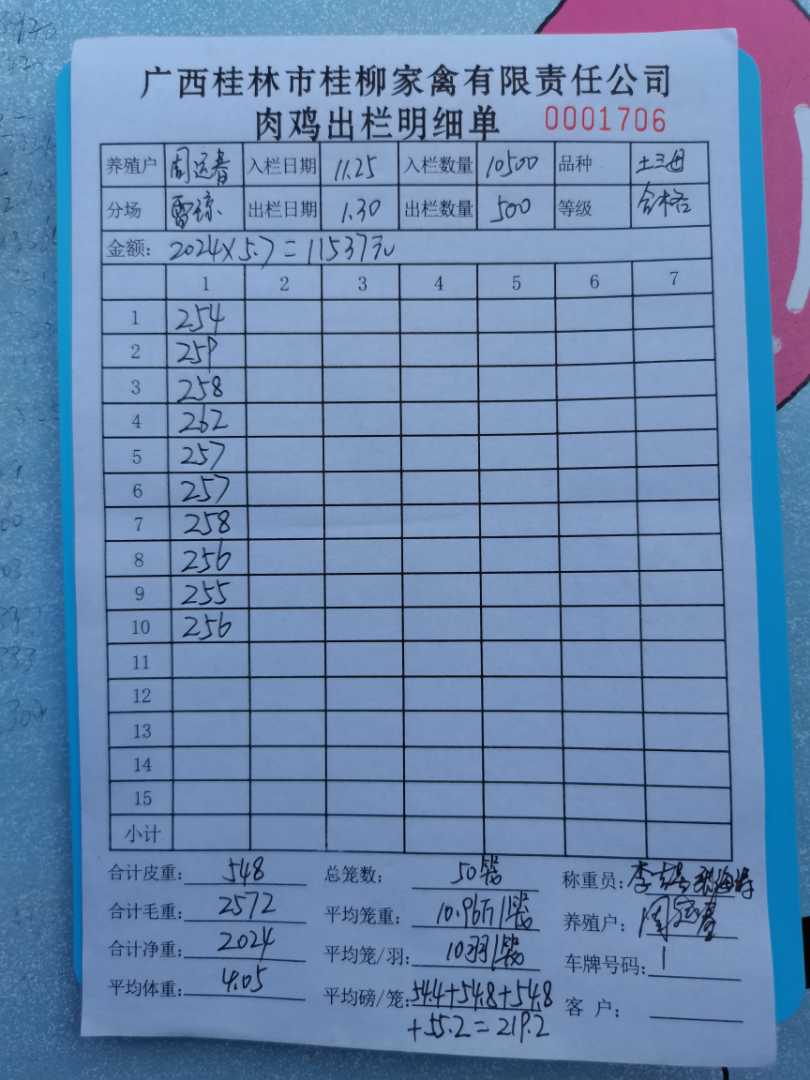 广西桂林市桂柳家禽有限责任公司
肉鸡出栏明细单 0001706
养殖户 周运春 入栏日期 11.25 入栏数量 10500 品种 土三母
分场 雷琼 出栏日期 1.30 出栏数量 500 等级 合格
金额: 2024×5.7=11537元
1 2 3 4 5 6 7
1 254
2 259
3 258
4 262
5 257
6 257
7 258
8 256
9 255
10 256
11
12
13
14
15
小计
合计皮重: 548 总笼数: 50笼 称重员: 李
合计毛重: 2572 平均笼重: 10.96斤/笼 养殖户: 周运春
合计净重: 2024 平均笼/羽: 10羽/笼 车牌号码:
平均体重: 4.05 平均磅/笼: 54.4+54.8+54.8 客 户:
+55.2=219.2